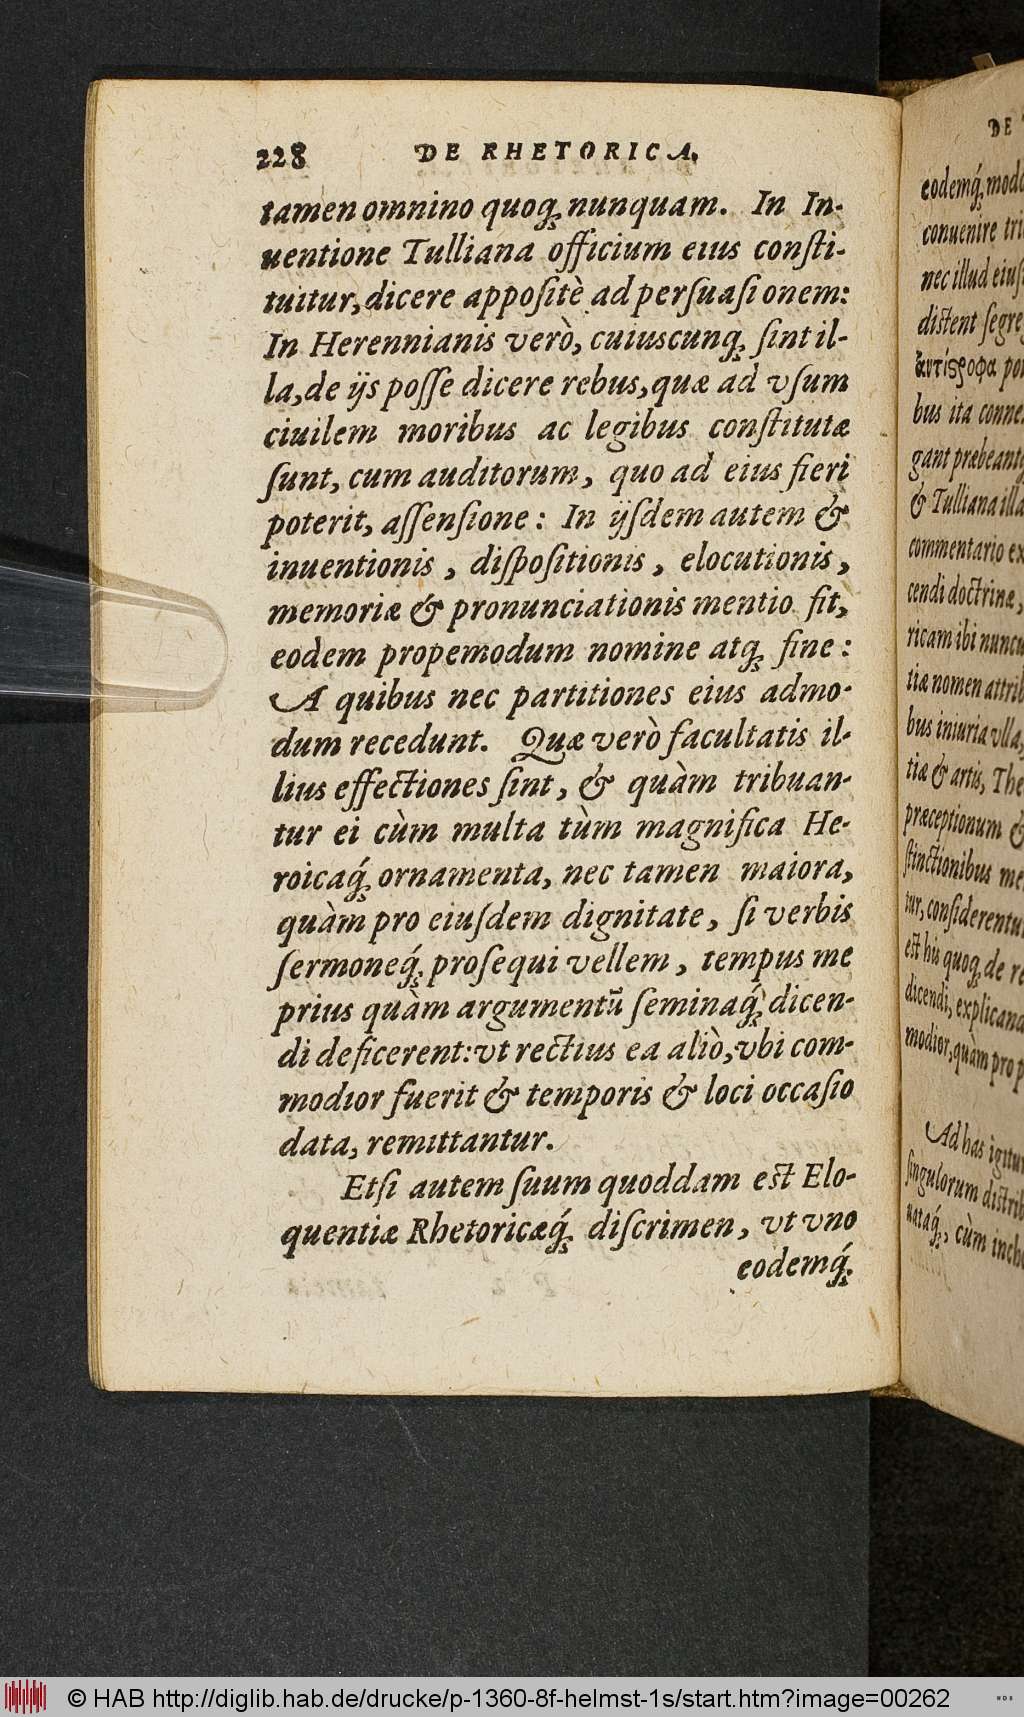 228 DE RHETORICA.
tamen omnino quoq; nunquam. In In-
uentione Tulliana officium eius consti-
tuitur, dicere appositè ad persuasionem:
In Herennianis verò, cuiuscunq; sint il-
la, de ijs posse dicere rebus, quæ ad vsum
ciuilem moribus ac legibus constitutæ
sunt, cum auditorum, quo ad eius fieri
poterit, assensione: In ijsdem autem &
inuentionis, dispositionis, elocutionis,
memoriæ & pronunciationis mentio fit,
eodem propemodum nomine atq; fine:
A quibus nec partitiones eius admo-
dum recedunt. Quæ verò facultatis il-
lius effectiones sint, & quàm tribuan-
tur ei cùm multa tùm magnifica He-
roicaq́; ornamenta, nec tamen maiora,
quàm pro eiusdem dignitate, si verbis
sermoneq́; prosequi vellem, tempus me
prius quàm argumentū seminaq́; dicen-
di deficerent: vt rectius ea aliò, vbi com-
modior fuerit & temporis & loci occasio
data, remittantur.
Etsi autem suum quoddam est Elo-
quentiæ Rhetoricæq́; discrimen, vt vno
eodemq́;
DE
eodemq́; modo
conuenire
nec illud
distent
ἀντίςροφα
bus ita
gant præbeantq
& Tulliana illa
commentario ex
cendi doctrinæ,
ricam ibi
tiæ nomen
bus iniuria vlla,
tiæ & artis,
præceptionum &
stinctionibus
tur, considerentur
est his quoq; de
dicendi,
modior, quàm pro
Ad has igitur
singulorum
uataq́;, cùm
© HAB http://diglib.hab.de/drucke/p-1360-8f-helmst-1s/start.htm?image=00262